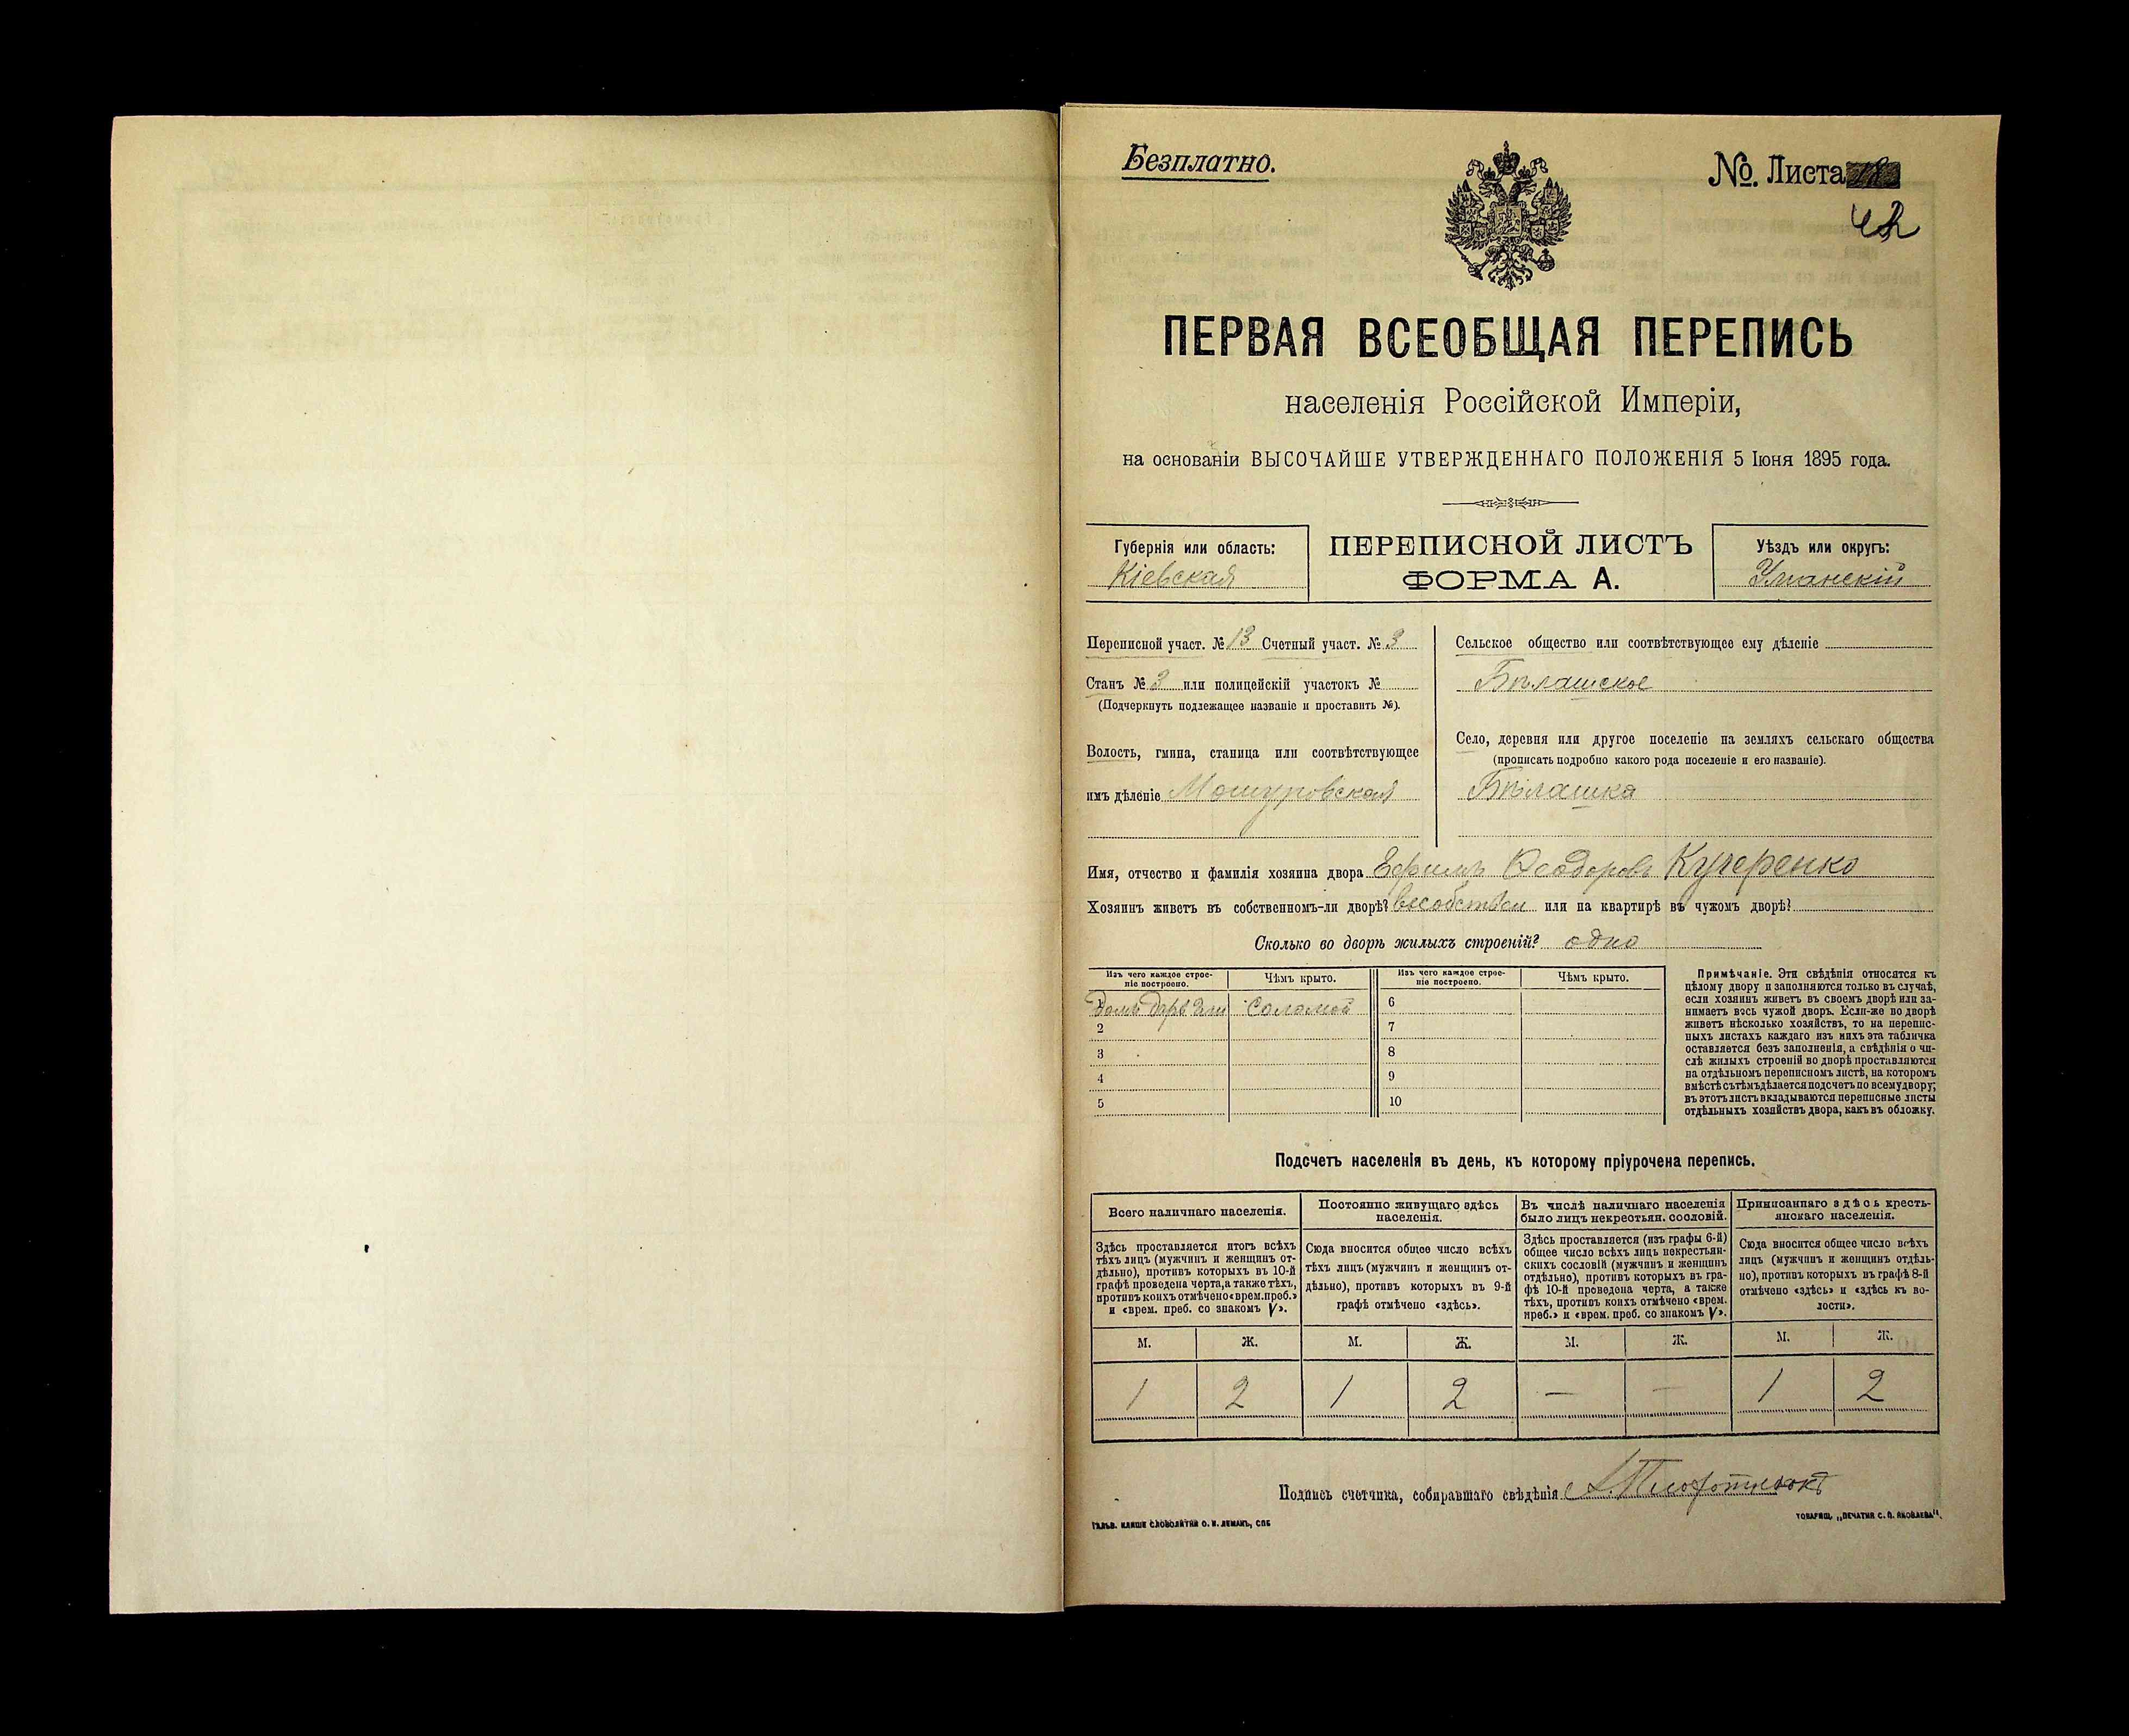 Безплатно.
№ Листа
42
ПЕРВАЯ ВСЕОБЩАЯ ПЕРЕПИСЬ
населенія Россійской Имперіи,
на основаніи ВЫСОЧАЙШЕ УТВЕРЖДЕННАГО ПОЛОЖЕНІЯ 5 Іюня 1895 года.
Губернія или область:
Кіевская
ПЕРЕПИСНОЙ ЛИСТЪ
ФОРМА А.
Уѣздъ или округъ:
Уманскій
Переписной участ. № 13 Счетный участ. № 3
Станъ № 3 или полицейскій участокъ №
(Подчеркнуть подлежащее названіе и проставить №).
Волость, гмина, станица или соотвѣтствующее
имъ дѣленіе Мошуровская
Сельское общество или соотвѣтствующее ему дѣленіе
Бѣлашское
Село, деревня или другое поселеніе на земляхъ сельскаго общества
(прописать подробно какого рода поселеніе и его названіе).
Бѣлашка
Имя, отчество и фамилія хозяина двора Ефимъ Феодоровъ Кучеренко
Хозяинъ живетъ въ собственномъ-ли дворѣ? или на квартирѣ въ чужомъ дворѣ?
Сколько во дворѣ жилыхъ строеній? одно
Изъ чего каждое строе-
ніе построено.
Чѣмъ крыто.
Изъ чего каждое строе-
ніе построено.
Чѣмъ крыто.
1 домъ Соломой 6
2 7
3 8
4 9
5 10
Примѣчаніе. Эти свѣдѣнія относятся къ
цѣлому двору и заполняются только въ случаѣ,
если хозяинъ живетъ въ своемъ дворѣ или за-
нимаетъ весь чужой дворъ. Если-же во дворѣ
живетъ нѣсколько хозяйствъ, то на перепис-
ныхъ листахъ каждаго изъ нихъ эта табличка
оставляется безъ заполненія, а свѣдѣнія о чи-
слѣ жилыхъ строеній во дворѣ проставляются
на отдѣльномъ переписномъ листѣ, на которомъ
вмѣстѣ съ тѣмъ дѣлается подсчетъ по всему двору;
въ этотъ листъ вкладываются переписные листы
отдѣльныхъ хозяйствъ двора, какъ въ обложку.
Подсчетъ населенія въ день, къ которому пріурочена перепись.
Всего наличнаго населенія.
Постоянно живущаго здѣсь
населенія.
Въ числѣ наличнаго населенія
было лицъ некрестьян. сословій.
Приписаннаго здѣсь кресть-
янскаго населенія.
Здѣсь проставляется итогъ всѣхъ
тѣхъ лицъ (мужчинъ и женщинъ от-
дѣльно), противъ которыхъ въ 10-й
графѣ проведена черта, а также тѣхъ,
противъ коихъ отмѣчено «врем. преб.»
и «врем. преб. со знакомъ V».
Сюда вносится общее число всѣхъ
тѣхъ лицъ (мужчинъ и женщинъ от-
дѣльно), противъ которыхъ въ 9-й
графѣ отмѣчено «здѣсь».
Здѣсь проставляется (изъ графы 6-й)
общее число всѣхъ лицъ некрестьян-
скихъ сословій (мужчинъ и женщинъ
отдѣльно), противъ которыхъ въ гра-
фѣ 10-й проведена черта, а также
тѣхъ, противъ коихъ отмѣчено «врем.
преб.» и «врем. преб. со знакомъ V».
Сюда вносится общее число всѣхъ
лицъ (мужчинъ и женщинъ отдѣль-
но), противъ которыхъ въ графѣ 8-й
отмѣчено «здѣсь» и «здѣсь къ во-
лости».
М. Ж. М. Ж. М. Ж. М. Ж.
1 2 1 2 — — 1 2
Подпись счетчика, собиравшаго свѣдѣнія
ГАЛЬВ. КЛИШЕ СЛОВОЛИТНИ О. И. ЛЕМАНЪ, СПБ
ТОВАРИЩ. „ПЕЧАТНЯ С. П. ЯКОВЛЕВА".